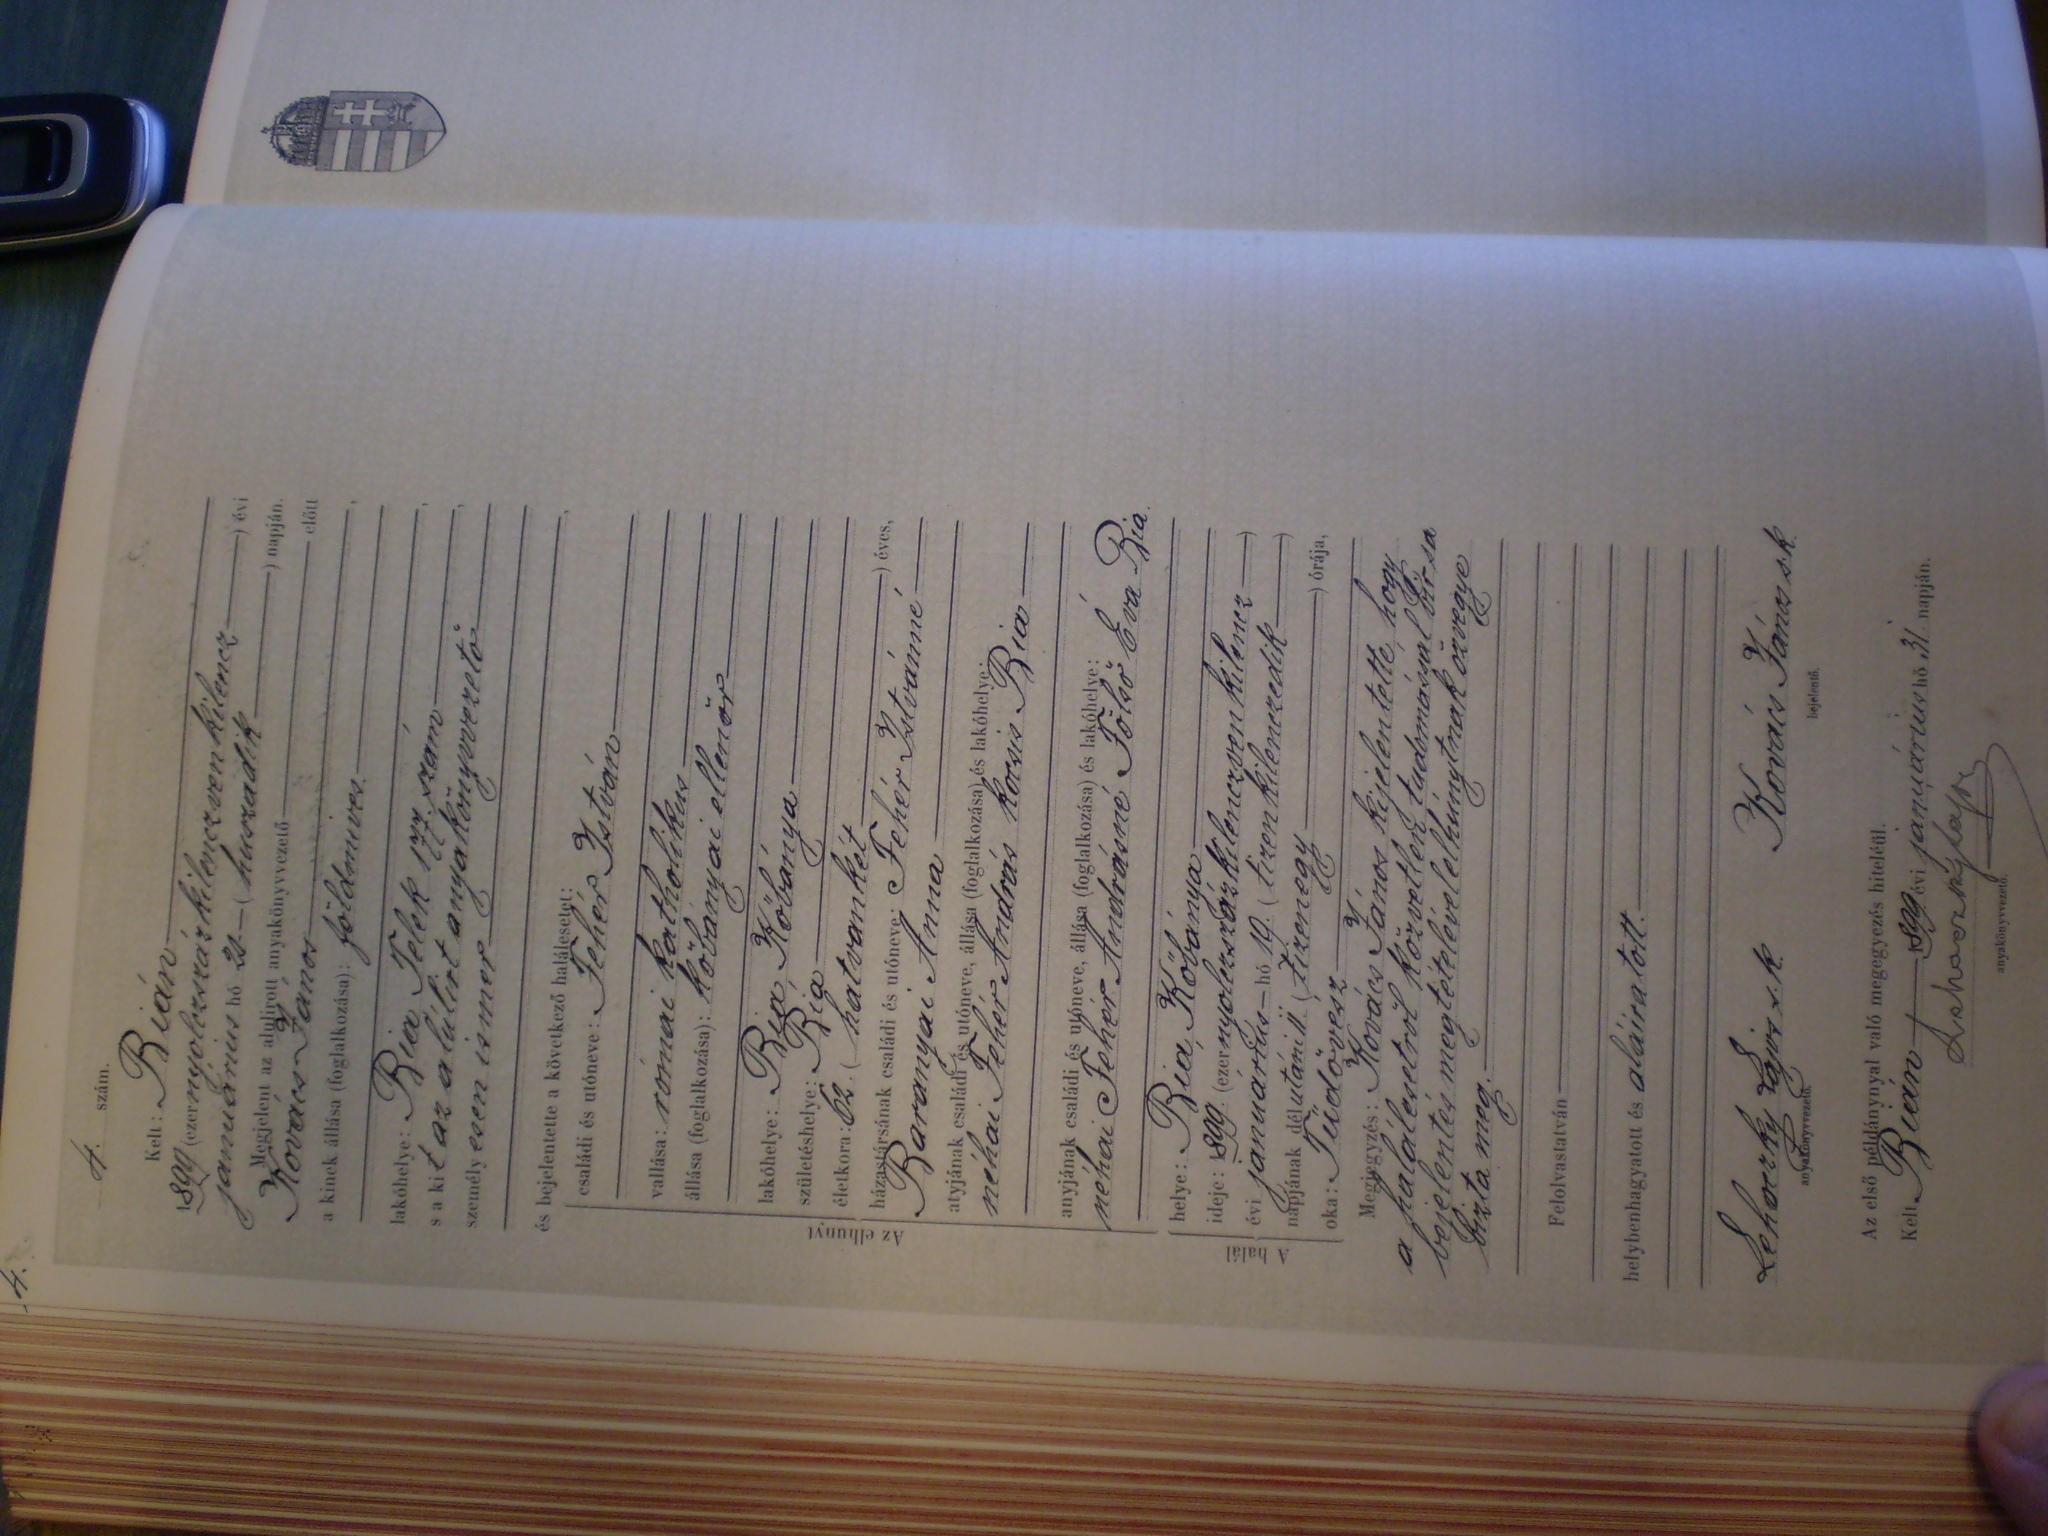 4.
4. szám.
Kelt: Bián
1899 (ezernyolczszázkilenczvenkilencz ) évi
január​ius hó 20 (huszadik ) napján.
Megjelent az alulirott anyakönyvvezető előtt
Kovács János
a kinek állása (foglalkozása): földmives.
lakóhelye: Bia Telek 177 szám
s a kit az alúlirt anyakönyvvezető
személyesen ismer
és bejelentette a következő halálesetet:
Az elhunyt
családi és utóneve: Fehér István
vallása: római katholikus
állása (foglalkozása): kőbányai ellenőr
lakóhelye: Bia, Kőbánya
születéshelye: Bia
életkora: 62. (hatvankét ) éves,
házastársának családi és utóneve: Fehér Istvánné
Baranyai Anna
atyjának családi és utóneve, állása (foglalkozása) és lakóhelye:
néhai Fehér András kocsis Bia
anyjának családi és utóneve, állása (foglalkozása) és lakóhelye:
néhai Fehér Andrásné Fölső Éva Bia.
A halál
helye: Bia, Kőbánya
ideje: 1899 (ezernyolczszázkilenczvenkilencz )
évi január​ius hó 19. (tizenkilenczedik )
napjának délutáni 11 (tizenegy ) órája,
oka: Tüdővész
Megjegyzés: Kovács János kijelentette hogy
a halálesetről közvetlen tudomásal bir sa
bejelentés megtételével elhúnytnak özvegye
bizta meg.
Felolvastatván
helybenhagyatott és aláiratott.
Lehoczky Lajos s.k. Kovács János s.k.
anyakönyvvezető. bejelentő.
Az első példánynyal való megegyezés hiteléül.
Kelt Bián 1899 évi január​ius hó 31. napján.
Lehoczky Lajos
anyakönyvvezető.